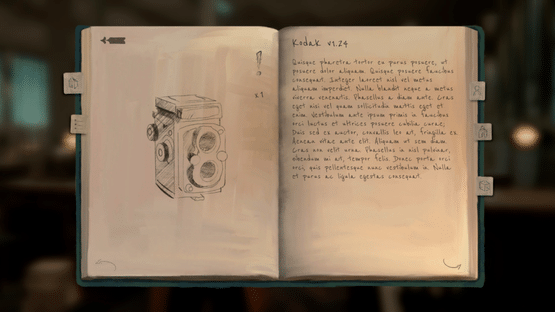 x1
Kodak v1.24
Quisque pharetra tortor eu purus posuere, ut
posuere dolor aliquam. Quisque posuere faucibus
consequat. Integer laoreet nisl vel metus
aliquam imperdiet. Nulla blandit neque a metus
viverra venenatis. Phasellus a diam ante. Cras
eget nisi vel quam sollicitudin mattis eget et
enim. Vestibulum ante ipsum primis in faucibus
orci luctus et ultrices posuere cubilia curae;
Duis sed ex auctor, convallis leo at, fringilla ex.
Aenean vitae ante elit. Aliquam ut sem diam.
Cras non velit urna. Phasellus in nisl pulvinar,
bibendum mi at, tempor felis. Donec porta orci
orci, quis pellentesque nunc vestibulum in. Nulla
et purus ac ligula egestas consequat.